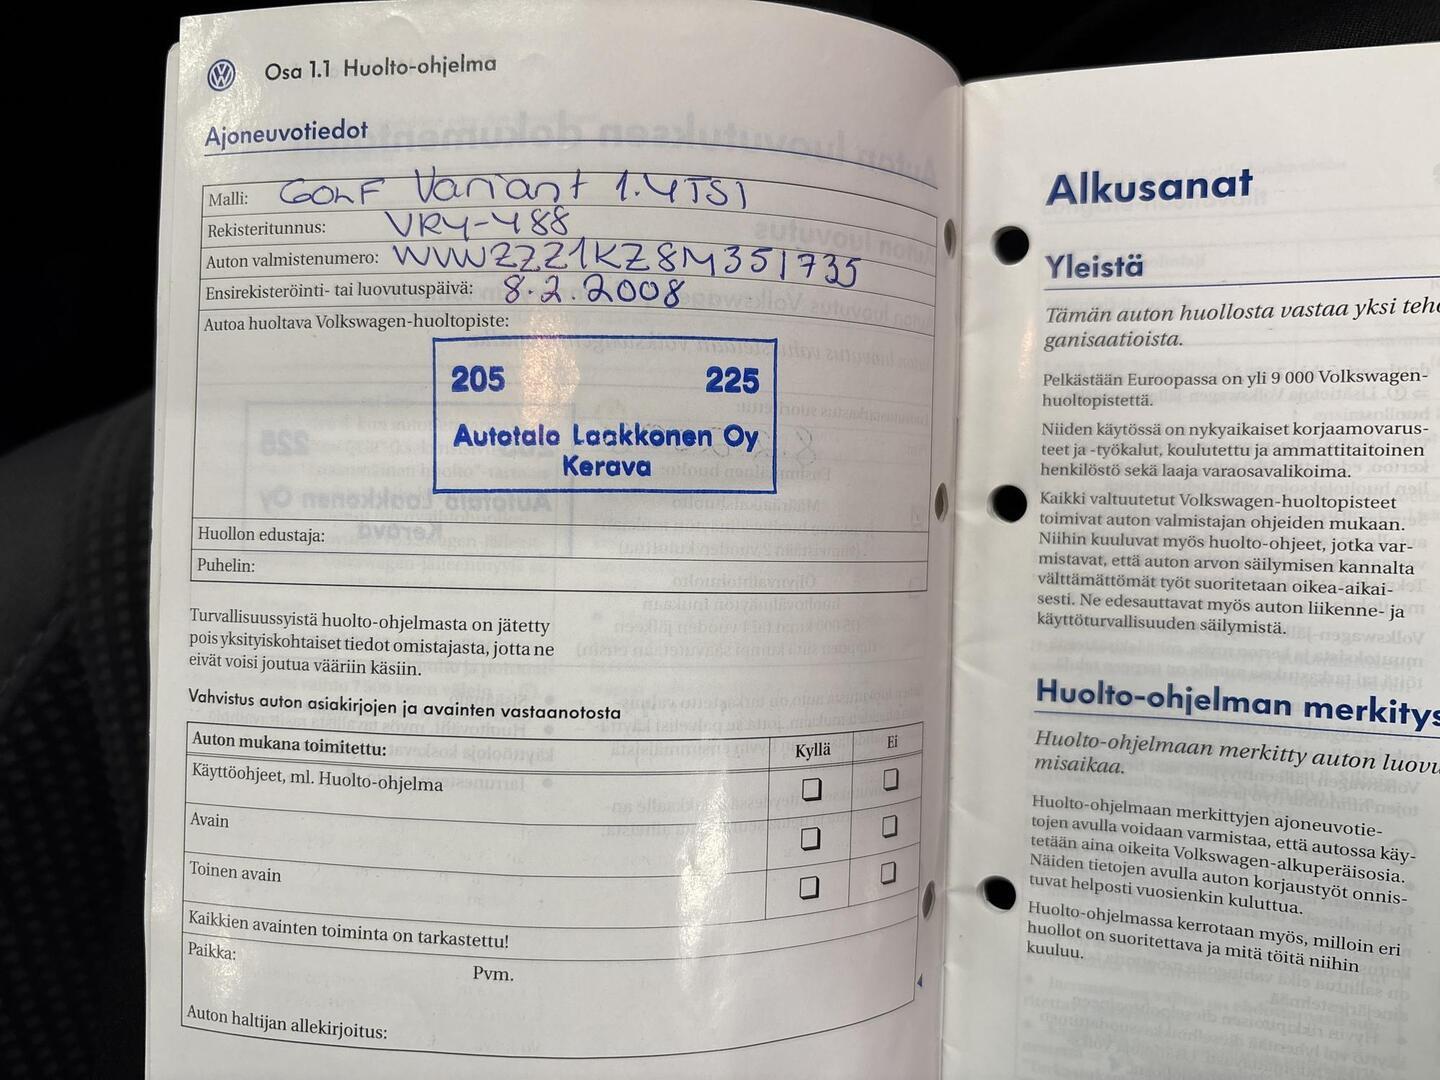 Osa 1.1 Huolto-ohjelma
Ajoneuvotiedot
Malli: GOLF Variant 1.4TSI
Rekisteritunnus: VRY-488
Auton valmistenumero: WVWZZZ1KZ8M351735
Ensirekisteröinti- tai luovutuspäivä: 8.2.2008
Autoa huoltava Volkswagen-huoltopiste:
205 225
Autotalo Laakkonen Oy
Kerava
Huollon edustaja:
Puhelin:
Turvallisuussyistä huolto-ohjelmasta on jätetty
pois yksityiskohtaiset tiedot omistajasta, jotta ne
eivät voisi joutua vääriin käsiin.
Vahvistus auton asiakirjojen ja avainten vastaanotosta
Auton mukana toimitettu: Kyllä Ei
Käyttöohjeet, ml. Huolto-ohjelma
Avain
Toinen avain
Kaikkien avainten toiminta on tarkastettu!
Paikka: Pvm.
Auton haltijan allekirjoitus:
Alkusanat
Yleistä
Tämän auton huollosta vastaa yksi teho
ganisaatioista.
Pelkästään Euroopassa on yli 9 000 Volkswagen-
huoltopistettä.
Niiden käytössä on nykyaikaiset korjaamovarus-
teet ja -työkalut, koulutettu ja ammattitaitoinen
henkilöstö sekä laaja varaosavalikoima.
Kaikki valtuutetut Volkswagen-huoltopisteet
toimivat auton valmistajan ohjeiden mukaan.
Niihin kuuluvat myös huolto-ohjeet, jotka var-
mistavat, että auton arvon säilymisen kannalta
välttämättömät työt suoritetaan oikea-aikai-
sesti. Ne edesauttavat myös auton liikenne- ja
käyttöturvallisuuden säilymistä.
Huolto-ohjelman merkitys
Huolto-ohjelmaan merkitty auton luovu
misaikaa.
Huolto-ohjelmaan merkittyjen ajoneuvotie-
tojen avulla voidaan varmistaa, että autossa käy-
tetään aina oikeita Volkswagen-alkuperäisosia.
Näiden tietojen avulla auton korjaustyöt onnis-
tuvat helposti vuosienkin kuluttua.
Huolto-ohjelmassa kerrotaan myös, milloin eri
huollot on suoritettava ja mitä töitä niihin
kuuluu.